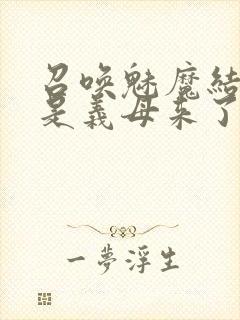 召喚魅魔結
是義母来了
一夢浮生